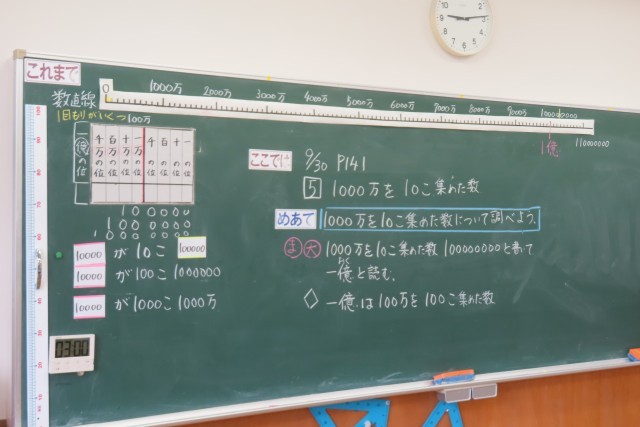 これまで
数直線
0 1000万 2000万 3000万 4000万 5000万 6000万 7000万 8000万 9000万
1目もりがいくつ100万
1億
110000000
一億の位 千万の位 百万の位 十万の位 一万の位 千の位 百の位 十の位 一の位
100000
10000 が10こ 100000
10000 が100こ 1000000
10000 が1000こ 1000万
ここでは
9/30 P141
5 1000万を10こ集めた数
めあて 1000万を10こ集めた数について調べよう。
ま 大 1000万を10こ集めた数 100000000と書いて
一億と読む。
おく
◇ 一億は100万を100こ集めた数